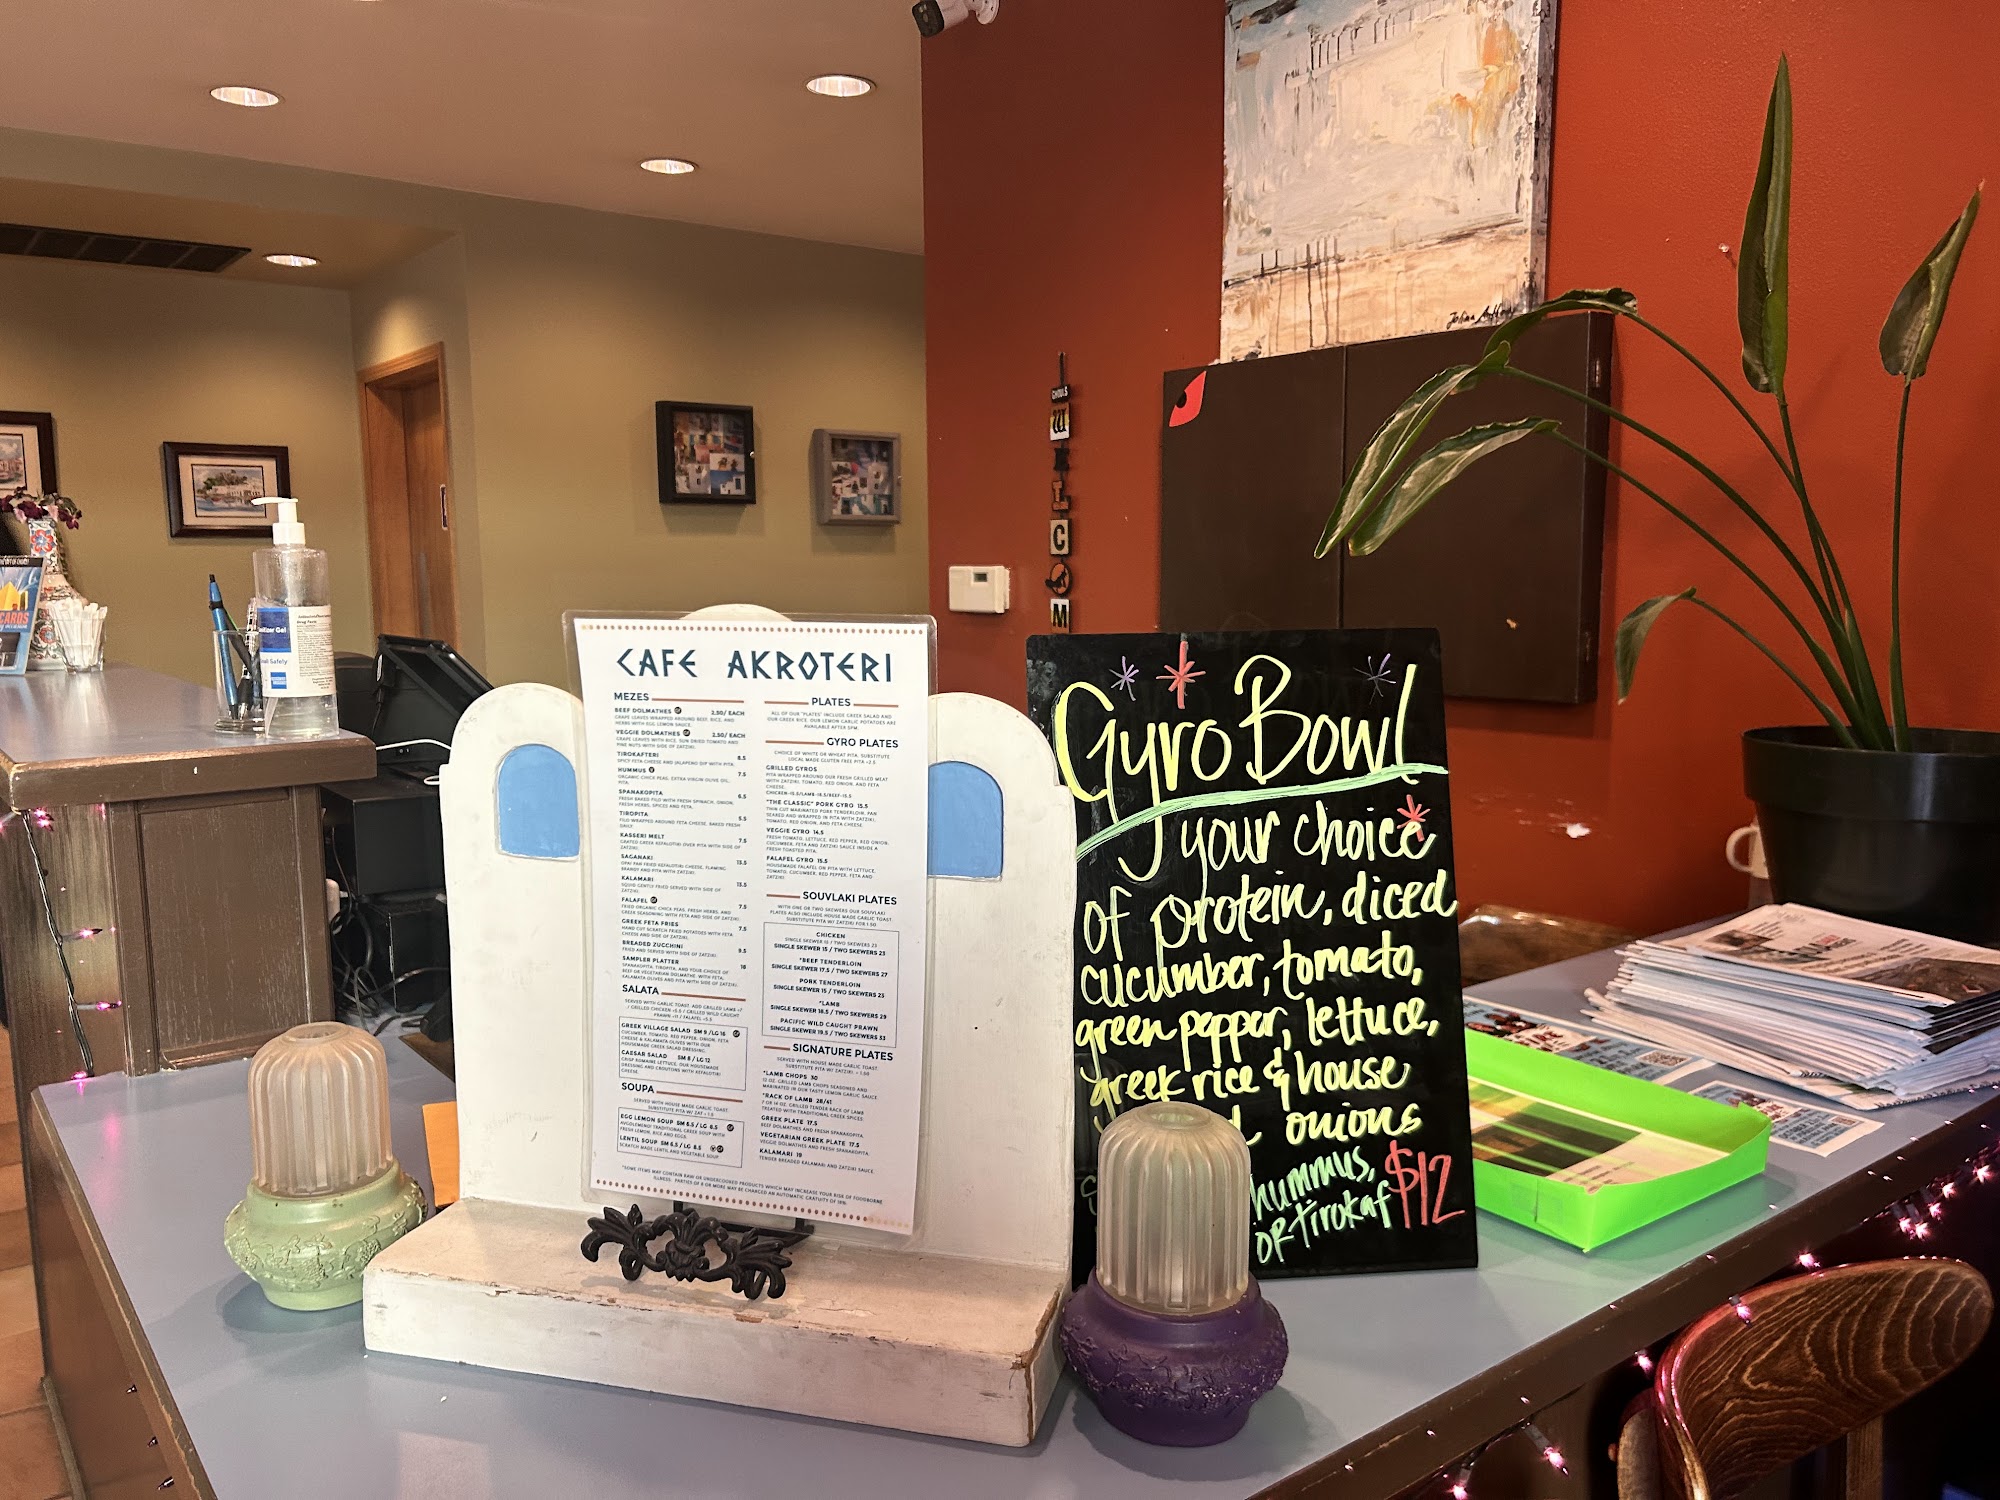 CAFE AKROTERI
MEZES
BEEF DOLMATHES GF 2.50/ EACH
GRAPE LEAVES WRAPPED AROUND BEEF, RICE, AND
HERBS WITH EGG LEMON SAUCE.
VEGGIE DOLMATHES GF 2.50/ EACH
GRAPE LEAVES WITH RICE, SUN DRIED TOMATO AND
PINE NUTS WITH SIDE OF ZATZIKI.
TIROKAFTERI 8.5
SPICY FETA CHEESE AND JALAPENO DIP WITH PITA.
HUMMUS V 7.5
ORGANIC CHICK PEAS, EXTRA VIRGIN OLIVE OIL,
PITA.
SPANAKOPITA 6.5
FRESH BAKED FILO WITH FRESH SPINACH, ONION,
FRESH HERBS, SPICES AND FETA.
TIROPITA 5.5
FILO WRAPPED AROUND FETA CHEESE, BAKED FRESH
DAILY
KASSERI MELT 7.5
GRATED GREEK KEFALOTIRI OVER PITA WITH SIDE OF
ZATZIKI.
SAGANAKI 13.5
OPA! PAN FRIED KEFALOTIRI CHEESE, FLAMING
BRANDY AND PITA WITH ZATZIKI.
KALAMARI 13.5
SQUID GENTLY FRIED SERVED WITH SIDE OF
ZATZIKI.
FALAFEL GF 7.5
FRIED ORGANIC CHICK PEAS, FRESH HERBS, AND
GREEK SEASONING WITH FETA AND SIDE OF ZATZIKI.
GREEK FETA FRIES 7.5
HAND CUT SCRATCH FRIED POTATOES WITH FETA
CHEESE AND SIDE OF ZATZIKI.
BREADED ZUCCHINI 9.5
FRIED AND SERVED WITH SIDE OF ZATZIKI.
SAMPLER PLATTER 16
SPANAKOPITA, TIROPITA, AND YOUR CHOICE OF
BEEF OR VEGETARIAN DOLMATHE WITH FETA,
KALAMATA OLIVES AND PITA WITH SIDE OF ZATZIKI.
SALATA
SERVED WITH GARLIC TOAST. ADD GRILLED LAMB +7
/ GRILLED CHICKEN +5.5 / GRILLED WILD CAUGHT
PRAWN +11 / FALAFEL +5.5
GREEK VILLAGE SALAD SM 9 /LG 16 GF
CUCUMBER, TOMATO, RED PEPPER, ONION, FETA
CHEESE & KALAMATA OLIVES WITH OUR
HOUSEMADE GREEK SALAD DRESSING.
CAESAR SALAD SM 8 / LG 12
CRISP ROMAINE LETTUCE, OUR HOUSEMADE
DRESSING AND CROUTONS WITH KEFALOTIRI
CHEESE.
SOUPA
SERVED WITH HOUSE MADE GARLIC TOAST.
EGG LEMON SOUP SM 5.5 / LG 8.5 GF
AVGOLEMENO! TRADITIONAL GREEK SOUP WITH
FRESH LEMON, RICE AND EGGS.
LENTIL SOUP SM 6.5 / LG 8.5 V GF
SCRATCH MADE LENTIL AND VEGETABLE SOUP.
PLATES
ALL OF OUR "PLATES" INCLUDE GREEK SALAD AND
OUR GREEK RICE. OUR LEMON GARLIC POTATOES ARE
AVAILABLE AFTER 5PM.
GYRO PLATES
CHOICE OF WHITE OR WHEAT PITA. SUBSTITUTE
LOCAL MADE GLUTEN FREE PITA +2.5
GRILLED GYROS
PITA WRAPPED AROUND OUR FRESH GRILLED MEAT
WITH ZATZIKI, TOMATO, RED ONION, AND FETA
CHEESE.
"THE CLASSIC" PORK GYRO 15.5
THIN CUT MARINATED PORK TENDERLOIN, PAN
SEARED AND WRAPPED IN PITA WITH ZATZIKI,
TOMATO, RED ONION, AND FETA CHEESE.
VEGGIE GYRO 14.5
FRESH TOMATO, LETTUCE, RED PEPPER, RED ONION,
CUCUMBER, FETA AND ZATZIKI SAUCE INSIDE A
FRESH TOASTED PITA.
FALAFEL GYRO 15.5
HOUSEMADE FALAFEL ON PITA WITH LETTUCE,
TOMATO, CUCUMBER, RED PEPPER, FETA AND
ZATZIKI.
SOUVLAKI PLATES
WITH ONE OR TWO SKEWERS OUR SOUVLAKI
PLATES ALSO INCLUDE HOUSE MADE GARLIC TOAST.
SUBSTITUTE PITA W/ ZATZIKI FOR 1.50
CHICKEN
SINGLE SKEWER 15 / TWO SKEWERS 23
SINGLE SKEWER 15 / TWO SKEWERS 23
*BEEF TENDERLOIN
SINGLE SKEWER 17.5 / TWO SKEWERS 27
PORK TENDERLOIN
SINGLE SKEWER 15 / TWO SKEWERS 23
*LAMB
SINGLE SKEWER 18.5 / TWO SKEWERS 29
PACIFIC WILD CAUGHT PRAWN
SINGLE SKEWER 19.5 / TWO SKEWERS 33
SIGNATURE PLATES
SERVED WITH HOUSE MADE GARLIC TOAST.
SUBSTITUTE PITA W/ ZATZIKI. + 1.50
*LAMB CHOPS 30
12 OZ. GRILLED LAMB CHOPS SEASONED AND
MARINATED IN OUR TASTY LEMON GARLIC SAUCE.
*RACK OF LAMB 28/41
7 OR 14 OZ. GRILLED TENDER RACK OF LAMB
TREATED WITH TRADITIONAL GREEK SPICES.
GREEK PLATE 17.5
BEEF DOLMATHES AND FRESH SPANAKOPITA.
VEGETARIAN GREEK PLATE 17.5
VEGGIE DOLMATHES AND FRESH SPANAKOPITA.
KALAMARI 19
TENDER BREADED KALAMARI AND ZATZIKI SAUCE.
*SOME ITEMS MAY CONTAIN RAW OR UNDERCOOKED PRODUCTS WHICH MAY INCREASE YOUR RISE OF FOODBORNE
ILLNESS. PARTIES OF 8 OR MORE MAY BE CHARGED AN AUTOMATIC GRATUITY OF 18%.
Gyro Bowl
your choice
of protein, diced
cucumber, tomato,
green pepper, lettuce,
greek rice & house
onions
hummus,
OR tirokaf $12
GHOULS
W
E
L
C
O
M
CARDS